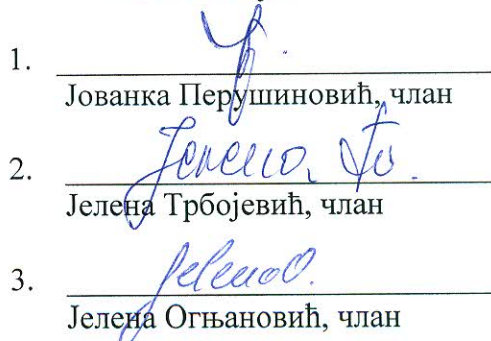 1.
Јованка Перушиновић, члан
2. Јелена
Јелена Трбојевић, члан
3. Jelena O.
Јелена Огњановић, члан